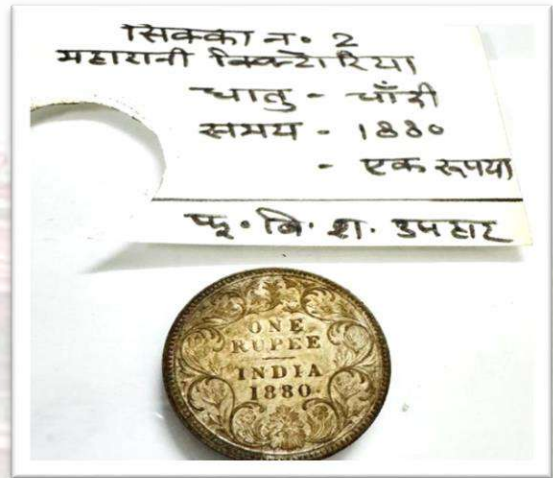 सिक्का नं॰ 2
महारानी विक्टोरिया
धातु - चाँदी
समय - 1880
- एक रूपया
पू॰ वि॰ श॰ उपहार
ONE
RUPEE
INDIA
1880